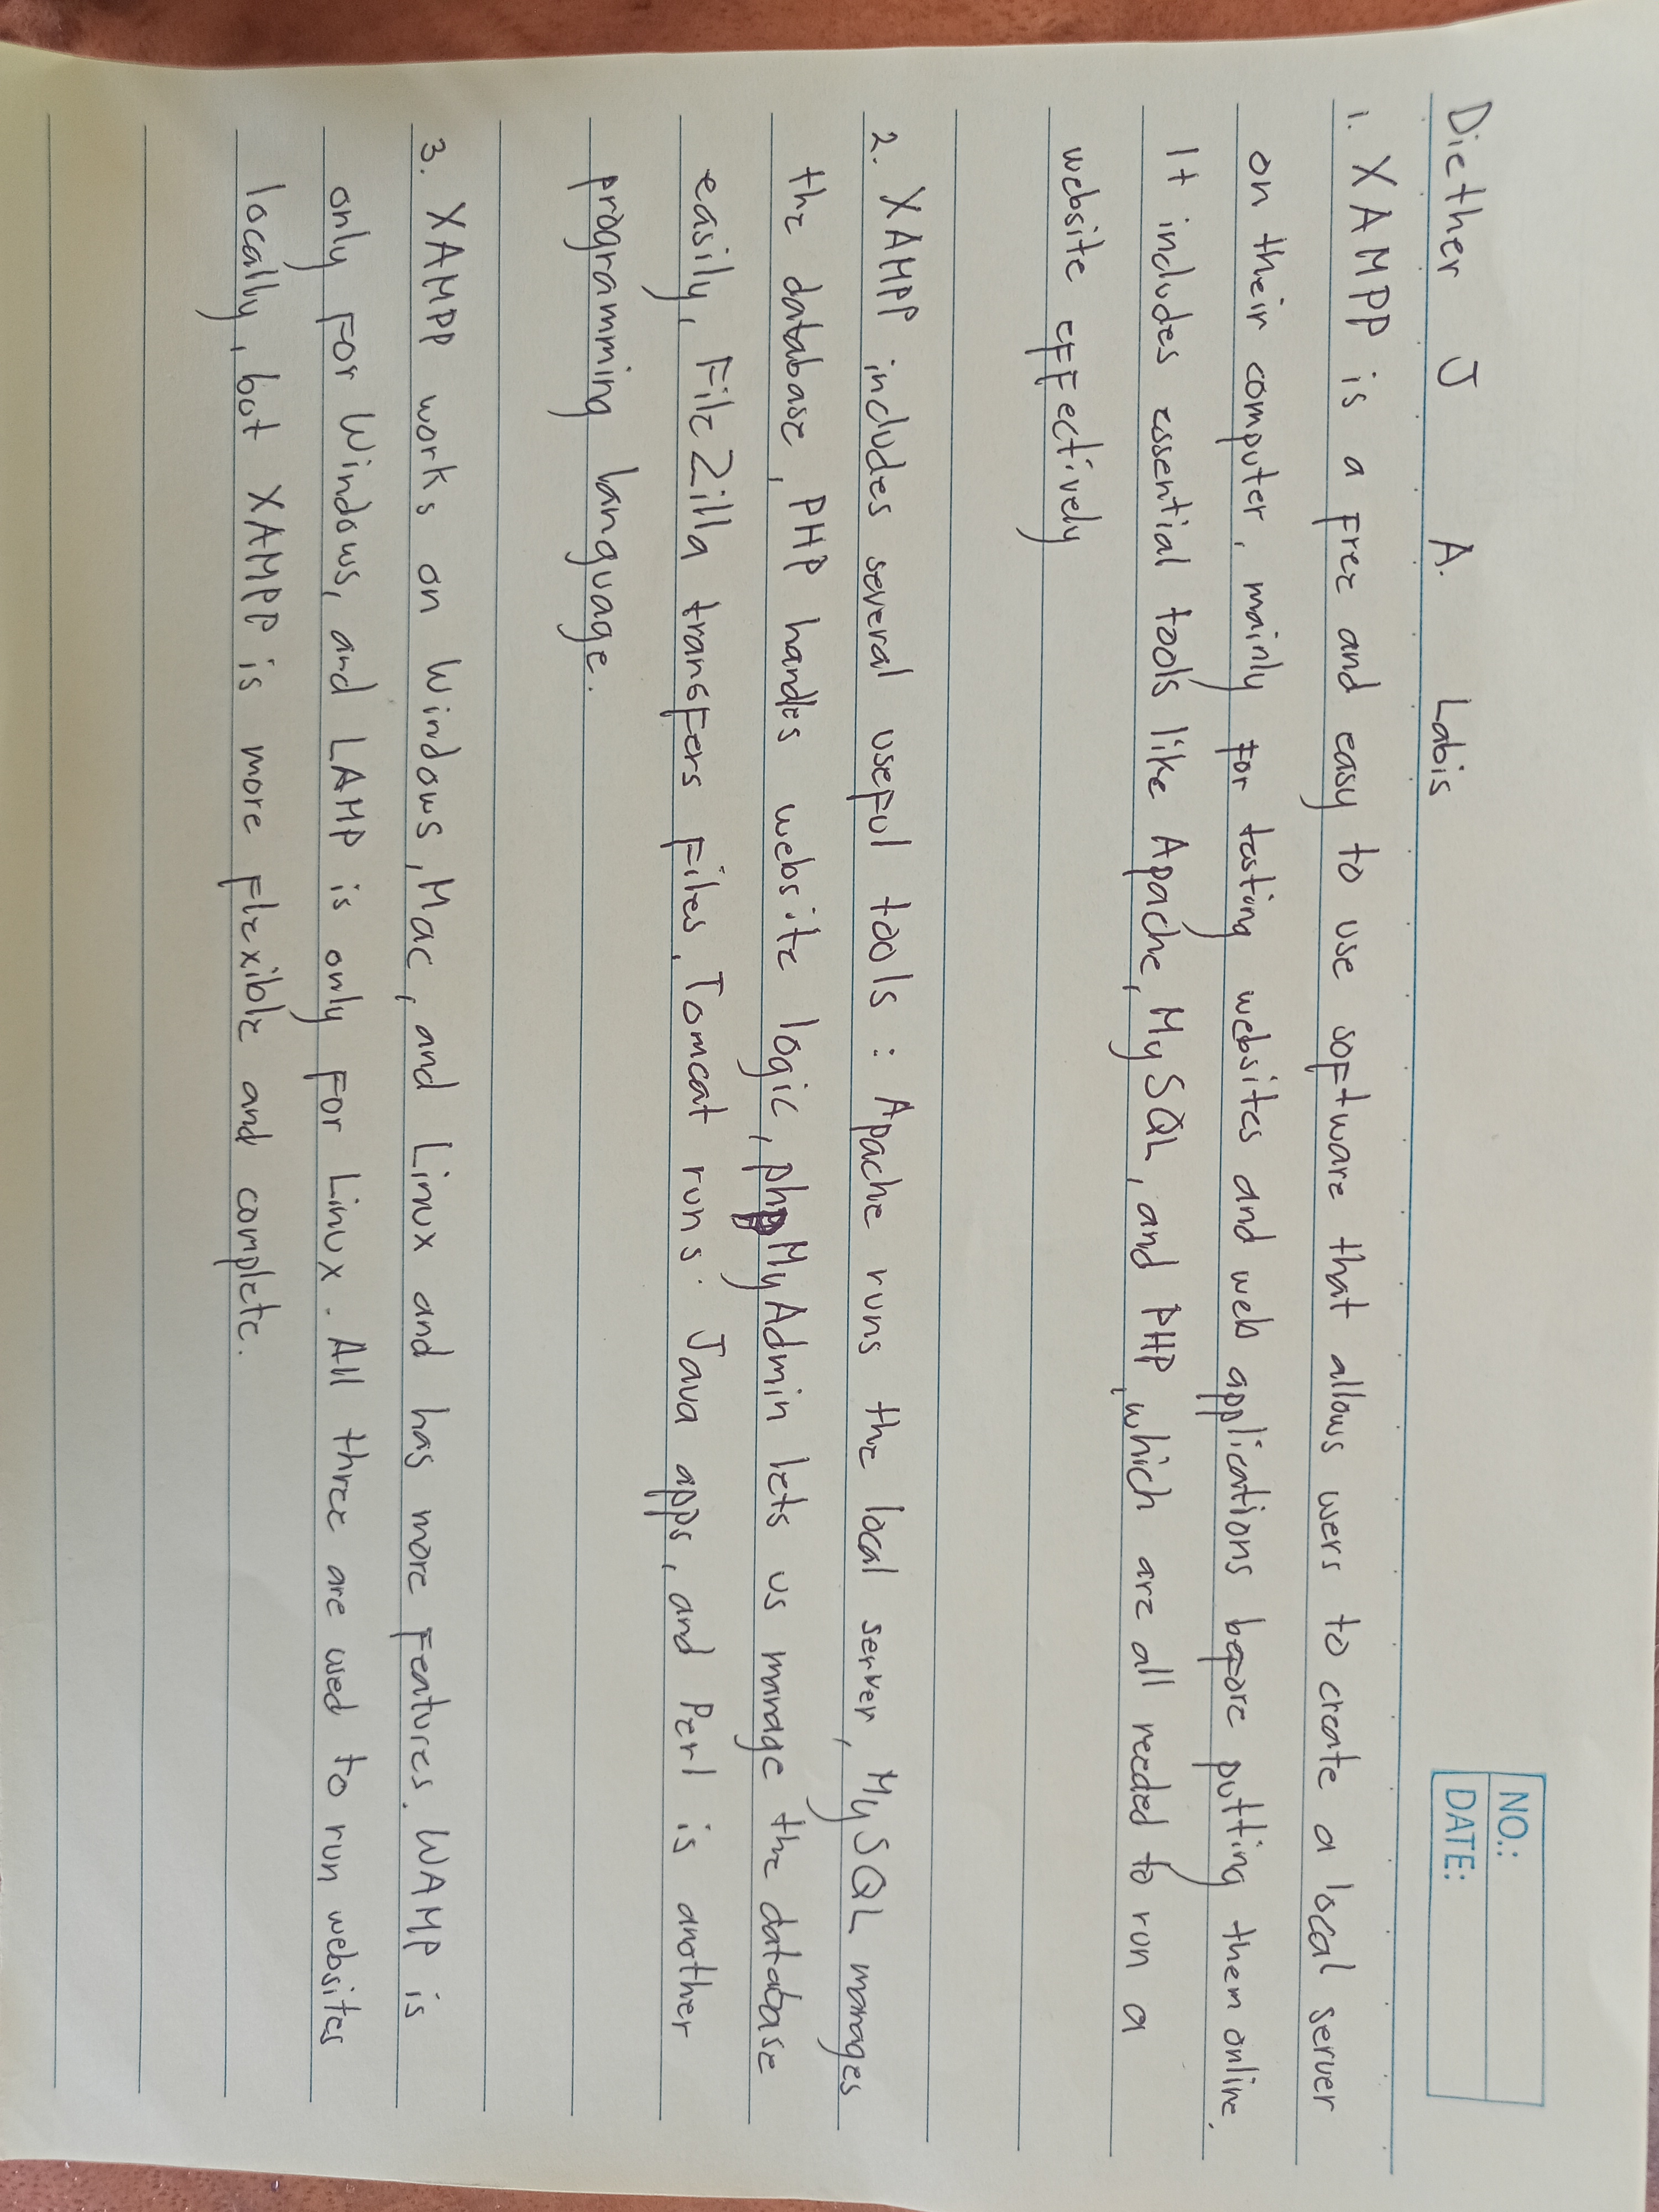 NO.:
DATE:
Diether J A. Labis
1. XAMPP is a free and easy to use software that allows users to create a local server
on their computer, mainly for testing websites and web applications before putting them online.
It includes essential tools like Apache, MySQL, and PHP, which are all needed to run a
website effectively
2. XAMPP includes several useful tools : Apache runs the local server, MySQL manages
the database, PHP handles website logic, phpMyAdmin lets us manage the database
easily, FileZilla transfers files, Tomcat runs Java apps, and Perl is another
programming language.
3. XAMPP works on Windows, Mac, and Linux and has more features. WAMP is
only for Windows, and LAMP is only for Linux. All three are used to run websites
locally, but XAMPP is more flexible and complete.